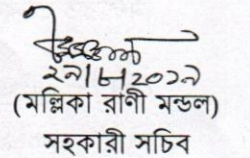 ২৯/৮/২০১৯
(মল্লিকা রাণী মন্ডল)
সহকারী সচিব